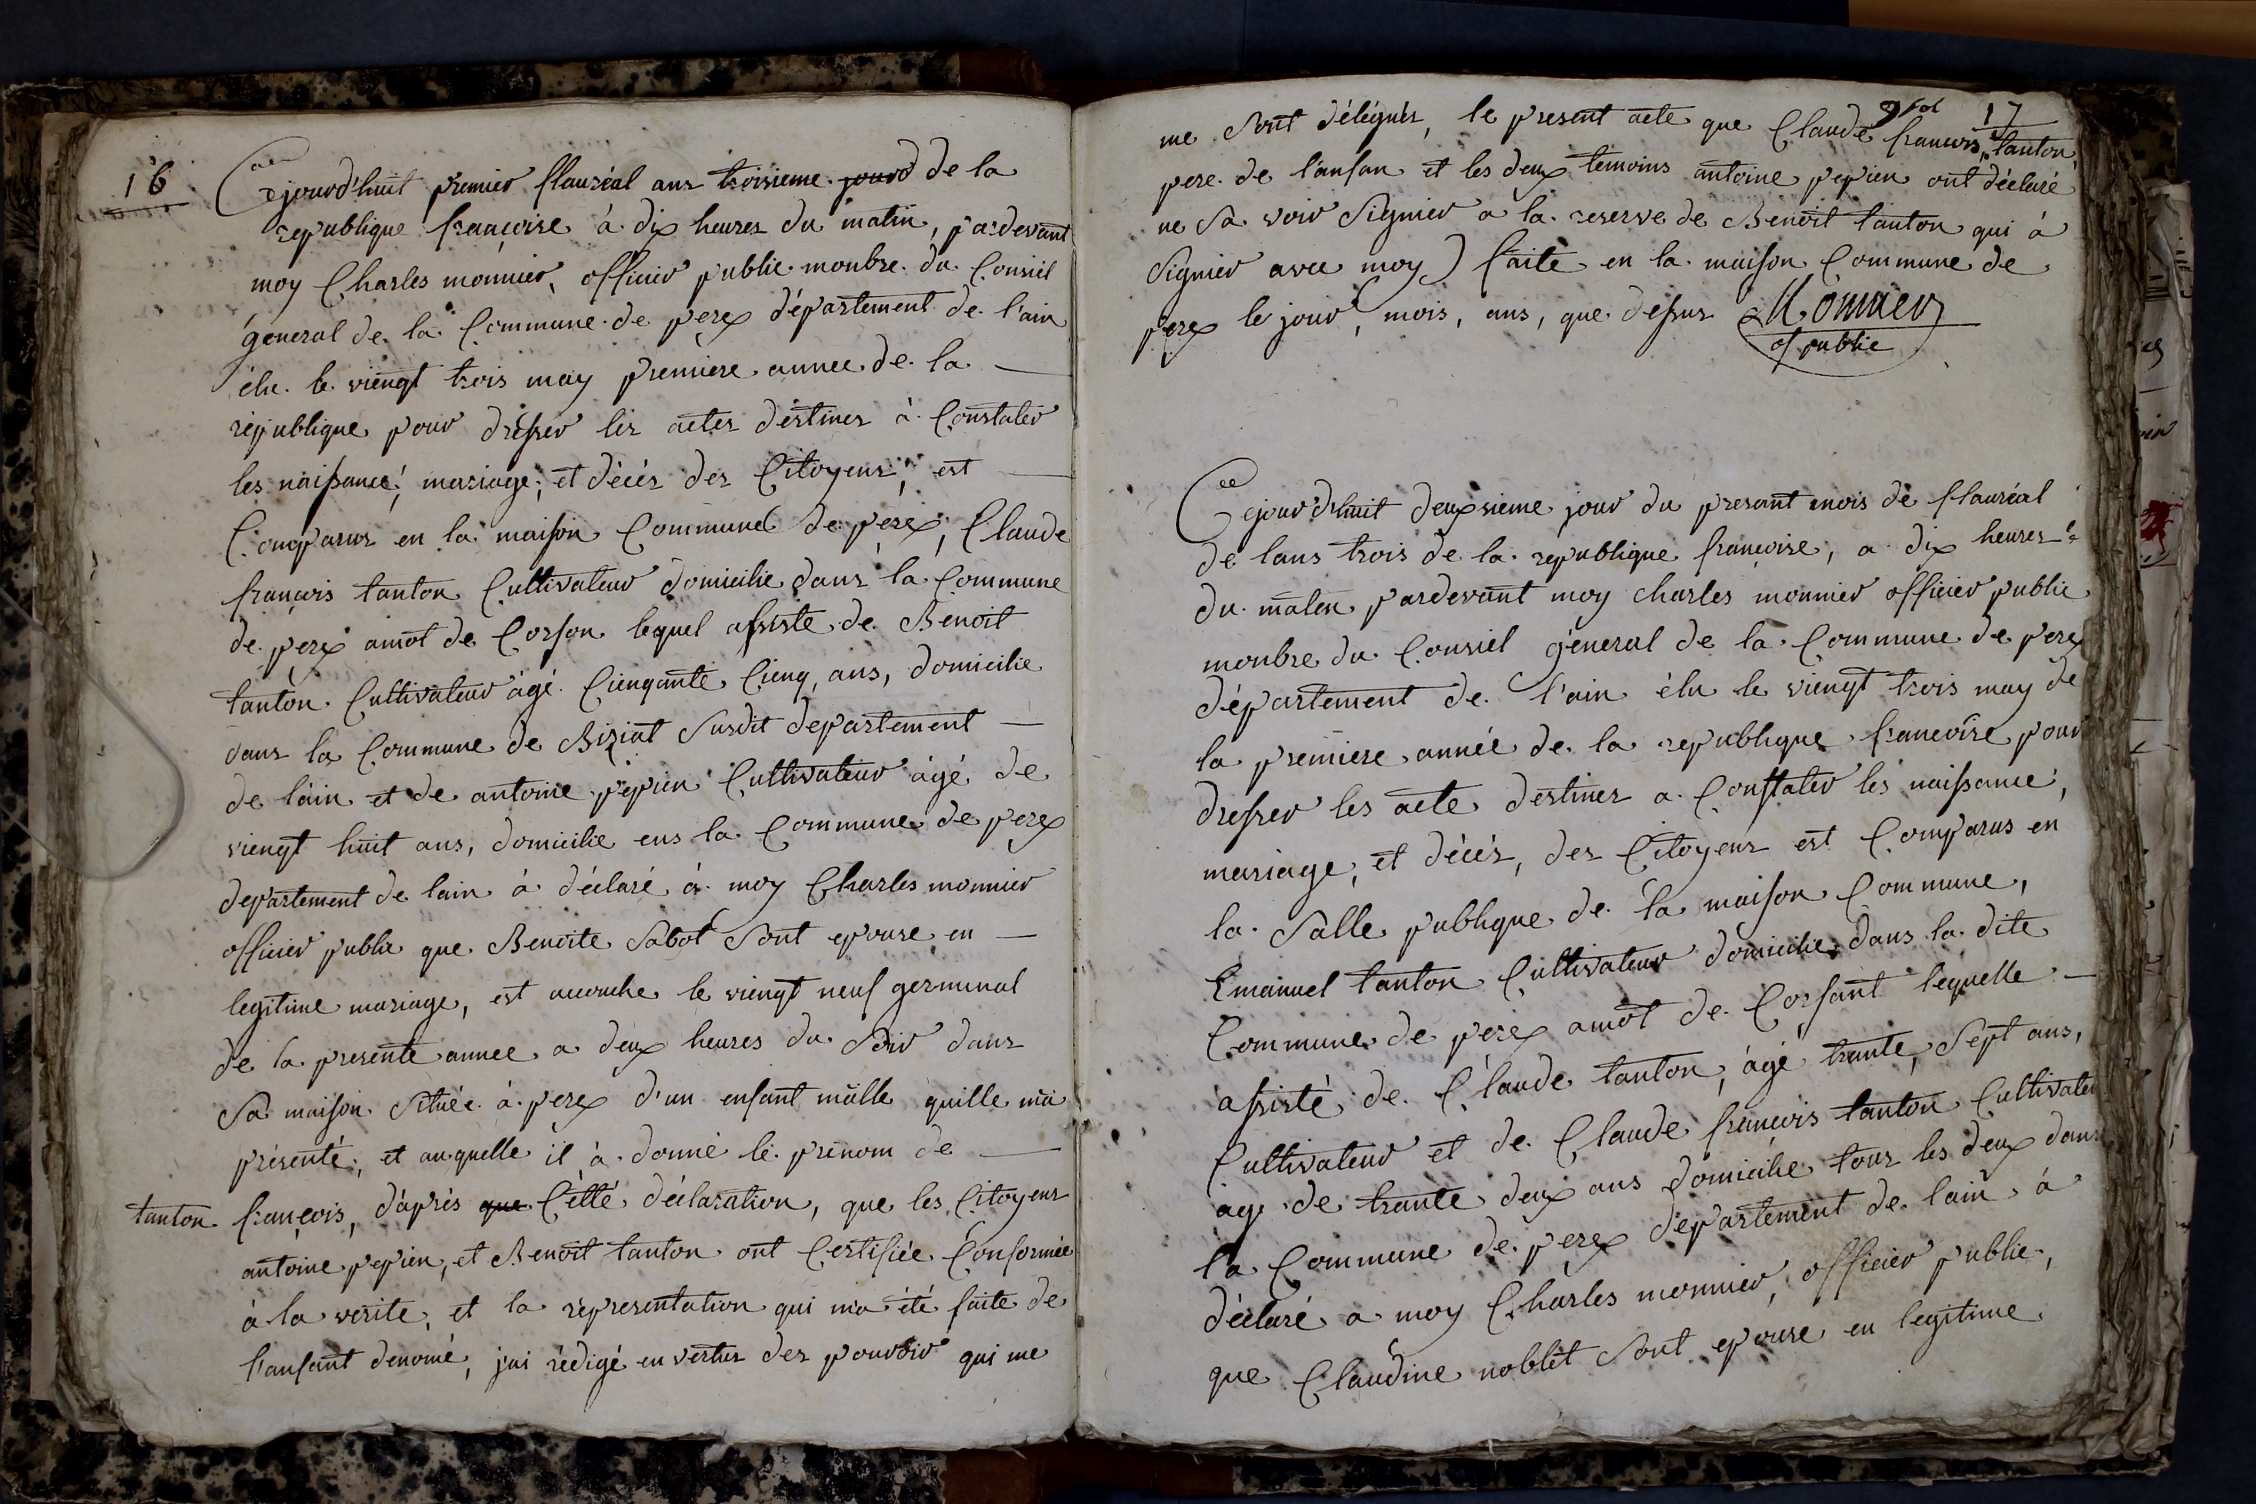 16
Cejourd'huit premier flauréal ans troisieme jourd de la
republique francoise à dix heures du matin, pardevant
moy Charles monnier, officier public monbre du Consiel
general de la Commune de perex département de l'ain
élu le viengt trois may premiere annee de la
république pour dresser les actes destines à Constater
les naissance, mariage, et décés des Citoyens, est
Conparus en la maison Commune de perex, Claude
françois tanton Cultivateur domicilie dans la Commune
de perex amot de Corson lequel assiste de Benoit
tanton Cultivateur àgé Cienqante Cienq, ans, domicilie
dans la Commune de Biziat susdit departement
de l'ain et de antoine pepien Cultivateur àgé de
viengt huit ans, domicilie ens la Commune de perex
departement de lain à déclaré à moy Charles monnier
officier public que Benoite Sabot sont epouse en
legitime mariage, est acouche le viengt neuf germinal
de la presente annee a deux heures du soir dans
sa maison située à perex d'un enfant malle quille ma
présenté, et auquelle il à donné le prénom de
tanton françois, d'après que Cette déclaration, que les Citoyens
antoine pepien, et Benoit tanton ont Certifiée Conformée
à la verite, et la représentation qui ma été faite de
l'anfant denomé, jai rédigé en vertus des pouvoir qui me
17
me sont délégués, le present acte que Claude francois tanton
pere de l'anfan et les deux temoins antoine pepien ont déclaré
ne sa voir signier a la reserve de Benoit tanton qui à
signier avec moy) faite en la maison Commune de
perex le jour, mois, ans, que dessus Monnier
of public
Cejourd'huit deuxsieme jour du presant mois de flauréal
de lans trois de la république françoise, a dix heures
du maten pardevant moy charles monnier officier public
monbre du Consiel géneral de la Commune de perex
département de l'ain élu le viengt trois may de
la premiere année de la republique francoise pour
dresser les acte destines a Constater les naissance,
mariage, et décés, des Citoyens est Comparus en
la Salle publique de la maison Commune,
Emanuel tanton Cultivateur domicilie dans la dite
Commune de perex amot de Corsant lequelle
assisté de Claude tanton, àgé trante, sept ans,
Cultivateur et de Claude françois tanton Cultivateu
age de trante deux ans domicilie tous les deux dans
la Commune de perex departement de lain à
déclaré a moy Charles monnier, officier public,
que Claudine noblet sont epouse en legitime